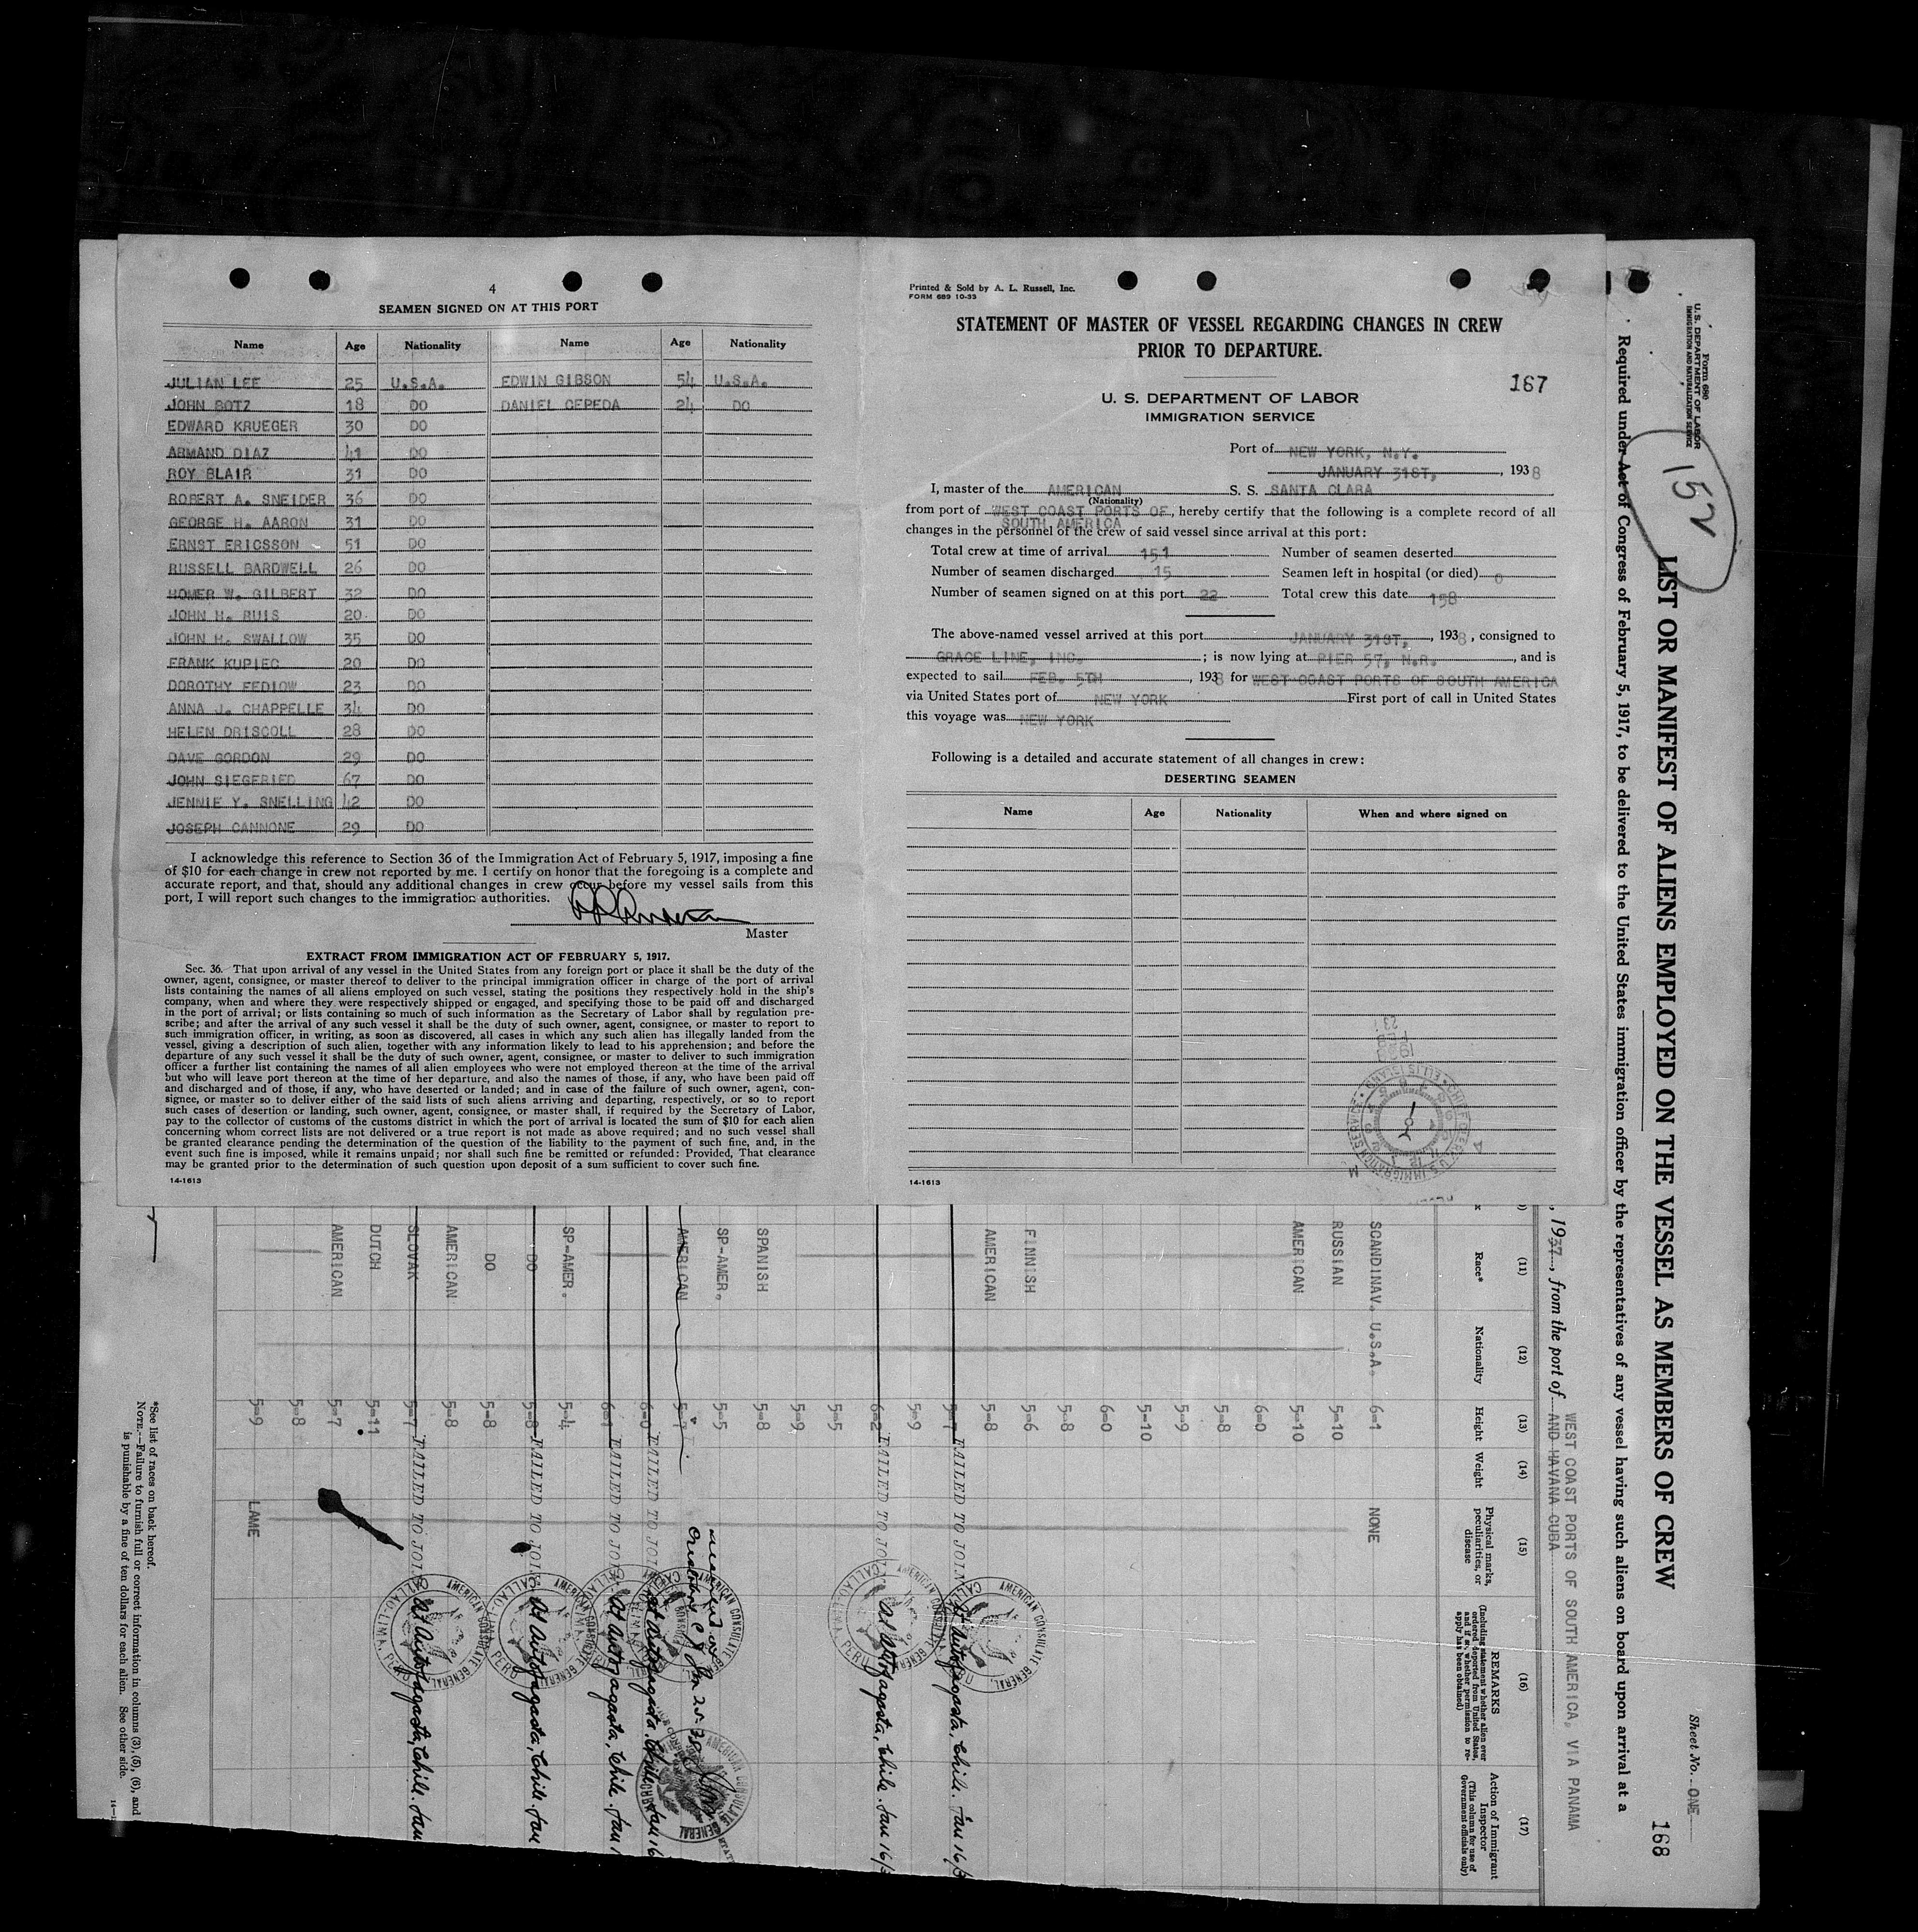 4
SEAMEN SIGNED ON AT THIS PORT
Name Age Nationality Name Age Nationality
JULIAN LEE 25 U.S.A. EDWIN GIBSON 54 U.S.A.
JOHN BOTZ 18 DO DANIEL CEPEDA 24 DO
EDWARD KRUEGER 30 DO
ARMAND DIAZ 41 DO
ROY BLAIR 31 DO
ROBERT A. SNEIDER 36 DO
GEORGE H. AARON 31 DO
ERNST ERICSSON 51 DO
RUSSELL BARDWELL 26 DO
HOMER W. GILBERT 32 DO
JOHN H. RUIS 20 DO
JOHN H. SWALLOW 35 DO
FRANK KUPIEC 20 DO
DOROTHY FEDIOW 23 DO
ANNA J. CHAPPELLE 34 DO
HELEN DRISCOLL 28 DO
DAVE GORDON 29 DO
JOHN SIEGFRIED 67 DO
JENNIE Y. SNELLING 42 DO
JOSEPH CANNONE 29 DO
I acknowledge this reference to Section 36 of the Immigration Act of February 5, 1917, imposing a fine
of $10 for each change in crew not reported by me. I certify on honor that the foregoing is a complete and
accurate report, and that, should any additional changes in crew occur before my vessel sails from this
port, I will report such changes to the immigration authorities.
Master
EXTRACT FROM IMMIGRATION ACT OF FEBRUARY 5, 1917.
Sec. 36. That upon arrival of any vessel in the United States from any foreign port or place it shall be the duty of the
owner, agent, consignee, or master thereof to deliver to the principal immigration officer in charge of the port of arrival
lists containing the names of all aliens employed on such vessel, stating the positions they respectively hold in the ship's
company, when and where they were respectively shipped or engaged, and specifying those to be paid off and discharged
in the port of arrival; or lists containing so much of such information as the Secretary of Labor shall by regulation pre-
scribe; and after the arrival of any such vessel it shall be the duty of such owner, agent, consignee, or master to report to
such immigration officer, in writing, as soon as discovered, all cases in which any such alien has illegally landed from the
vessel, giving a description of such alien, together with any information likely to lead to his apprehension; and before the
departure of any such vessel it shall be the duty of such owner, agent, consignee, or master to deliver to such immigration
officer a further list containing the names of all alien employees who were not employed thereon at the time of the arrival
but who will leave port thereon at the time of her departure, and also the names of those, if any, who have been paid off
and discharged and of those, if any, who have deserted or landed; and in case of the failure of such owner, agent, con-
signee, or master so to deliver either of the said lists of such aliens arriving and departing, respectively, or so to report
such cases of desertion or landing, such owner, agent, consignee, or master shall, if required by the Secretary of Labor,
pay to the collector of customs of the customs district in which the port of arrival is located the sum of $10 for each alien
concerning whom correct lists are not delivered or a true report is not made as above required; and no such vessel shall
be granted clearance pending the determination of the question of the liability to the payment of such fine, and, in the
event such fine is imposed, while it remains unpaid; nor shall such fine be remitted or refunded: Provided, That clearance
may be granted prior to the determination of such question upon deposit of a sum sufficient to cover such fine.
14-1613
Printed & Sold by A. L. Russell, Inc.
FORM 689 10-33
STATEMENT OF MASTER OF VESSEL REGARDING CHANGES IN CREW
PRIOR TO DEPARTURE.
167
U. S. DEPARTMENT OF LABOR
IMMIGRATION SERVICE
Port of NEW YORK, N.Y.
JANUARY 31ST, , 1938
I, master of the AMERICAN S. S. SANTA CLARA
(Nationality)
from port of WEST COAST PORTS OF, hereby certify that the following is a complete record of all
SOUTH AMERICA
changes in the personnel of the crew of said vessel since arrival at this port:
Total crew at time of arrival 151 Number of seamen deserted
Number of seamen discharged 15 Seamen left in hospital (or died) 0
Number of seamen signed on at this port 22 Total crew this date 158
The above-named vessel arrived at this port JANUARY 31ST, , 1938, consigned to
GRACE LINE, INC. ; is now lying at PIER 57, N.R. , and is
expected to sail FEB. 5TH , 1938 for WEST COAST PORTS OF SOUTH AMERICA
via United States port of NEW YORK First port of call in United States
this voyage was NEW YORK
Following is a detailed and accurate statement of all changes in crew:
DESERTING SEAMEN
Name Age Nationality When and where signed on
14-1613
Form 680
U.S. DEPARTMENT OF LABOR
IMMIGRATION AND NATURALIZATION SERVICE
152
LIST OR MANIFEST OF ALIENS EMPLOYED ON THE VESSEL AS MEMBERS OF CREW
Sheet No. ONE
168
Required under Act of Congress of February 5, 1917, to be delivered to the United States immigration officer by the representatives of any vessel having such aliens on board upon arrival at a
, 1937, from the port of WEST COAST PORTS OF SOUTH AMERICA, VIA PANAMA
AND HAVANA CUBA
(11) (12) (13) (14) (15) (16) (17)
Race* Nationality Height Weight Physical marks, peculiarities, or disease
REMARKS
(Including statement whether alien ever ordered deported from United States, and if so, whether permission to re-apply has been obtained)
Action of Immigrant Inspector
(This column for use of Government officials only)
SCANDINAV. U.S.A. 6-1 NONE
RUSSIAN 5-10
AMERICAN 5-10
6-0
5-8
5-9
5-10
6-0
5-8
FINNISH 5-6
AMERICAN 5-8
5-7 FAILED TO JOIN at Antofagasta, Chile. Jan 16/3
5-9
6-2 FAILED TO JOIN at Antofagasta, Chile. Jan 16/3
5-5
5-9
SPANISH 5-8
SP-AMER. 5-5
AMERICAN 5-7
6-0 FAILED TO JOIN at Antofagasta, Chile. Jan 16
6-1 FAILED TO JOIN at Antofagasta, Chile. Jan 1
SP-AMER. 5-4
DO 5-8 FAILED TO JOIN at Antofagasta, Chile. Jan
DO 5-8
AMERICAN 5-8
SLOVAK 5-7 FAILED TO JOIN at Antofagasta, Chile. Jan
DUTCH 5-11
AMERICAN 5-7
5-8
5-9 LAME
AMERICAN CONSULATE GENERAL
CALLAO-LIMA, PERU
*See list of races on back hereof.
NOTE.—Failure to furnish full or correct information in columns (3), (5), (6), and
is punishable by a fine of ten dollars for each alien. See other side.